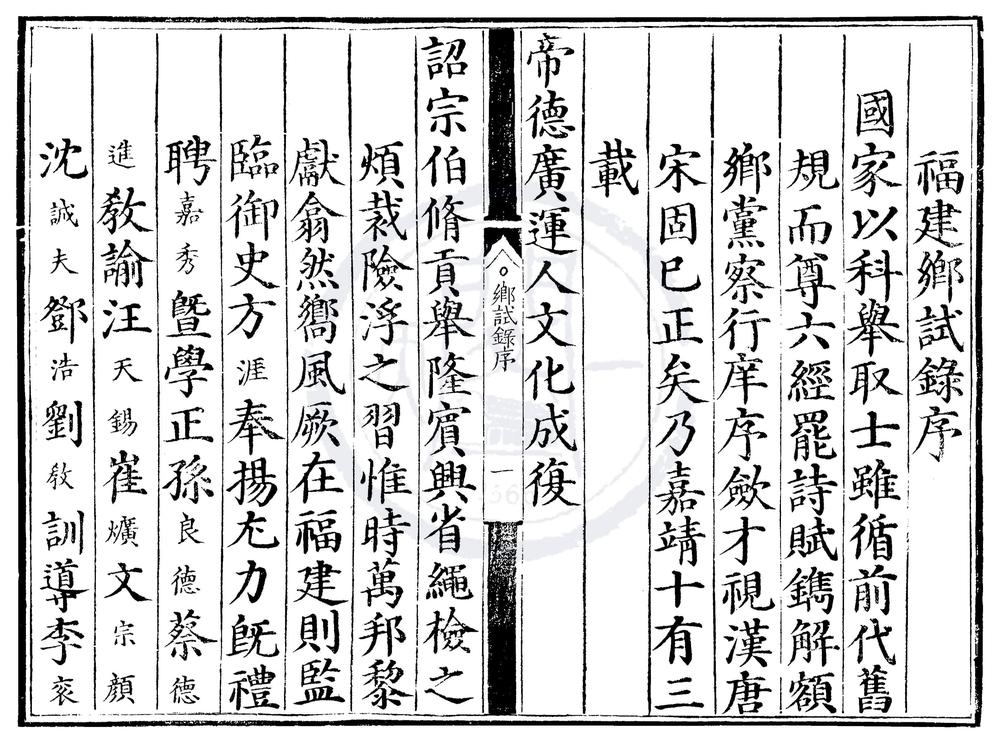 福建鄉試錄序
國家以科舉取士雖循前代舊
規而尊六經罷詩賦鐫解額
鄉黨察行庠序斂才視漢唐
宋固已正矣乃嘉靖十有三
載
帝德廣運人文化成復
鄉試錄序
一
詔宗伯脩貢舉隆賓興省繩檢之
煩裁險浮之習惟時萬邦黎
獻翕然嚮風厥在福建則監
臨御史方涯奉揚尤力旣禮
聘嘉秀曁學正孫良德蔡德
進教諭汪天錫崔爌文宗顏
沈誠夫鄧浩劉教訓導李衮